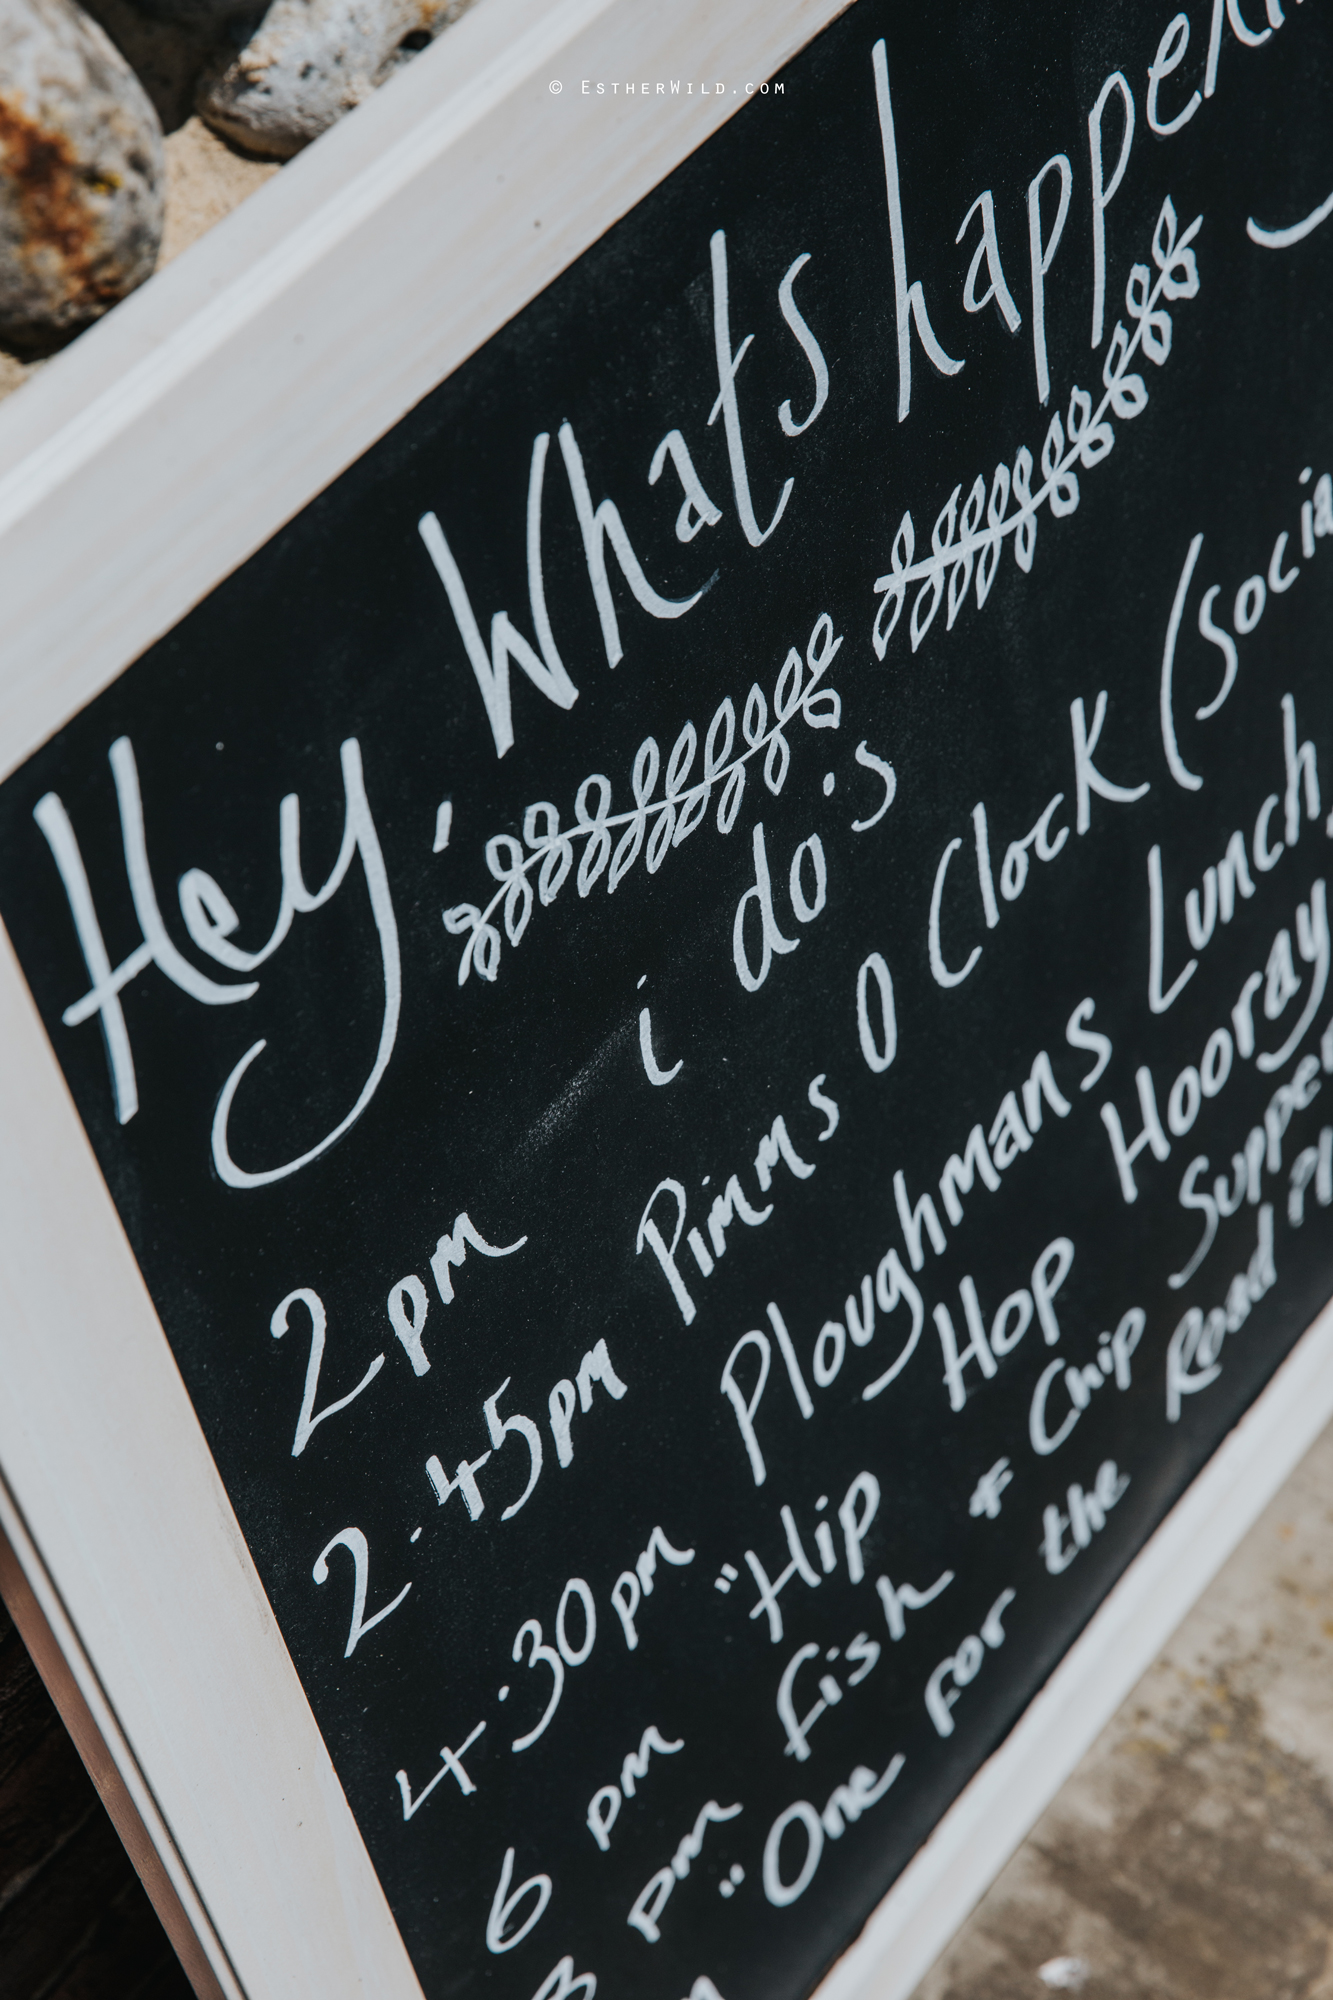 © EstherWild.com
Hey, Whats happen
2pm i do's
2.45pm Pimms O Clock (Socia
4.30pm Ploughmans Lunch
6 pm "Hip Hop Hooray
8 pm Fish & Chip Supper
"One for the Road